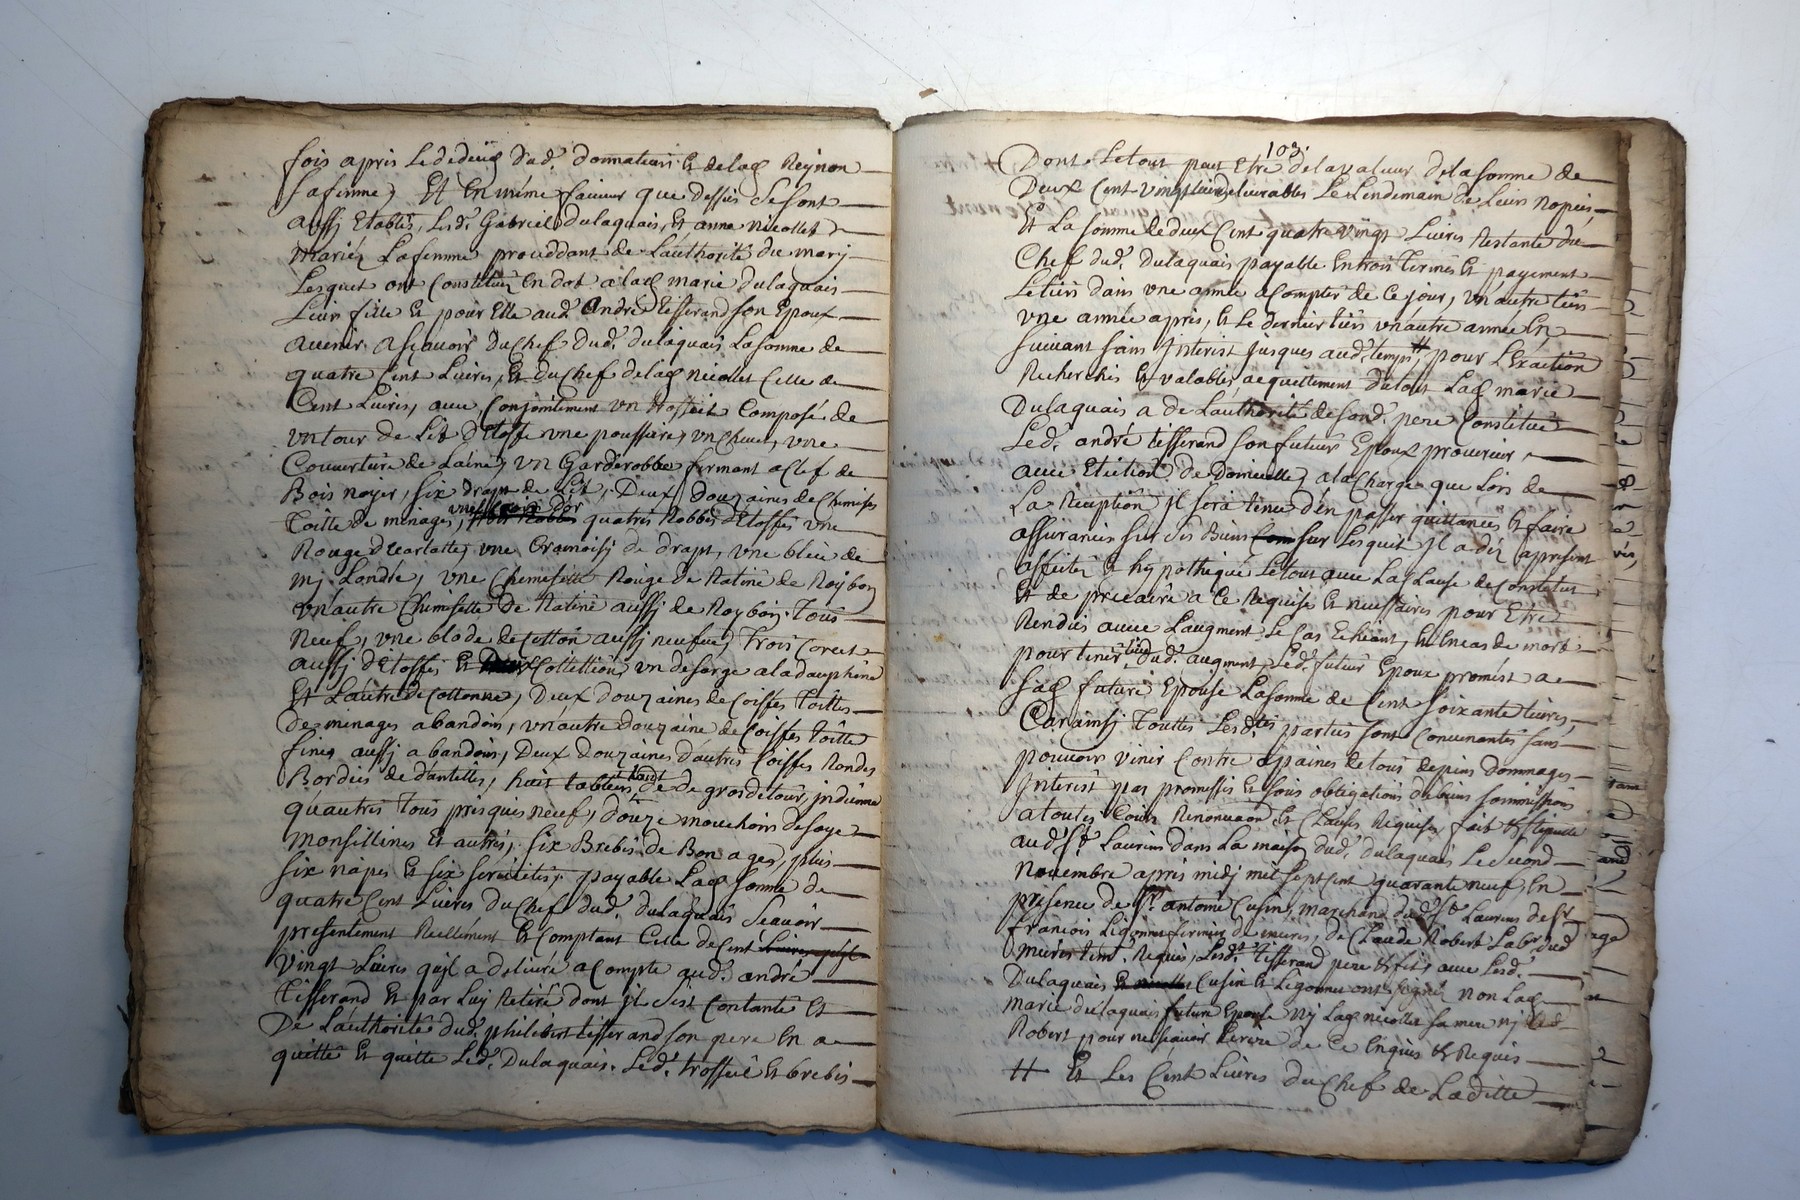 fois apres le dedeüg dud. donnateurs & de lad Reynon
sa femme, Et En même faueur que dessus se sont
aussi Etablis, Led. Gabriel dulaquais, Et anne nicollet
mariéz La femme procddant de L'authorité du mary
Lesquels ont Constitué En dot a lad marie dulaquais
Leur fille Et pour Elle aud. andré tisserand son Epoux
auenir. asçauoir du Chef dud. dulaquais La somme de
quatre Cent Liures, Et du Chef de lad nicollet Celle de
Cent Liures, auec Conjointement un trossel Composé de
un tour de Lit d'Etoffe une poussiere, un Cheuet, une
Couuerture de Laine, un Garderobbe fermant a Clef de
Bois noyer, six draps de Lit, Deux douzaines de Chemises
Toille de menages, quatres Robbes d'Etoffes une
Rouge d'Ecarlatte, une Cramoisy de drap, une bleüe de
mj. Londre, une Chemisette Rouge de Ratine de Roybon
un autre Chemisette de Ratine aussi de Roybon. Tous
neuf, une blode de Cotton aussi neufue, Trois Corcet
aussi d'Etoffes Et Cotillions, un de sarge a la dauphine
Et L'autre de Cottonne, Deux douzaines de Coiffes Toilles
De menages abandons, un autre douzaine de Coiffes Toille
fines aussi abandons, Deux douzaines d'autres Coiffes Rondes
Bordées de dantelles, huit tabliers de gros de tour, indienne
quautres tous presques neuf, douze mouchoirs de soye
Monsellines Et autres, six Brebis de Bon ages, plus
six napes Et six seruiettes, payable Lad somme de
quatre Cent Liures du Chef dud. dulaquais Scauoir
presentement Reellement Et Comptant Celle de Cent
vingt Liures qu'jl a deliuré a Compte aud. andré
tisserand Et par Luy Retiré dont jl s'est Contanté Et
De L'authorité dud. philibert tisserand son pere En a
quitté Et quitte Led. Dulaquais. Led. trossel Et brebis
103.
Dont Le tout peut Etre de la valeur de la somme de
Deux Cent vingt deliurables Le Lendemain de Leurs nopces
Et La somme de deux Cent quatre vingt Liures Restante du
Chef dud. Dulaquais payable En trois termes Et payement
Le tiers dans une année a Compter de Ce jour, un autre tiers
une année apres, Et Le dernier tiers un autre année En
suiuant sans Interist jusques aud. temps, # pour L'Exaction
Recherches Et valables acquittement du tout Lad marie
Dulaquais a de L'authorité de sond. pere Constitué
Led. andré tisserand son futeur Epoux procureur
auec Election de Domicille, a la Charge que Lors de
La Reception jl sera tenu d'en passer quittances Et faire
assurances sur ses Biens sur Lesquels jl a dez apresent
affecter & hypothequé Le tout auec La Clause de Constitut
Et de precaire a Ce Requise Et necessaires pour Etre
Rendües auec L'augment Le Cas Echeant, Et En cas de mort
pour tenir Lieu dud. augment, Led. futeur Epoux promést a
sad future Epouse La somme de Cent soixante liures,
Car ainsy Touttes Lesd. parties sont Conuenantes sans
pouuoir venir Contre apaines de tous depens dommages
Interist par promesses Et sous obligations de biens soumissions
a toutes Cours Renonuaon Et Clauses Requises, fait & stipullé
aud. St. Laurens dans La maison dud. dulaquais Le second
Nouembre apres midy mil sept Cent quarante neuf, En
presence de Sr. antoine Cusin, marchand dud. St. Laurens de Sr.
francois Ligonne fermier de mures, de Claude Robert Labr. dud
mures tem. Requis, Lesd. Tisserand pere & fils auec Lesd.
Dulaquais Cusin Et Ligonne ont signéz non Lad
marie dulaquais future Epouse ny Lad nicollet sa mere ny Led
Robert pour ne sçauoir Ecrire de Ce Enquis & Requis
# Et Les Cent Liures du Chef de Laditte